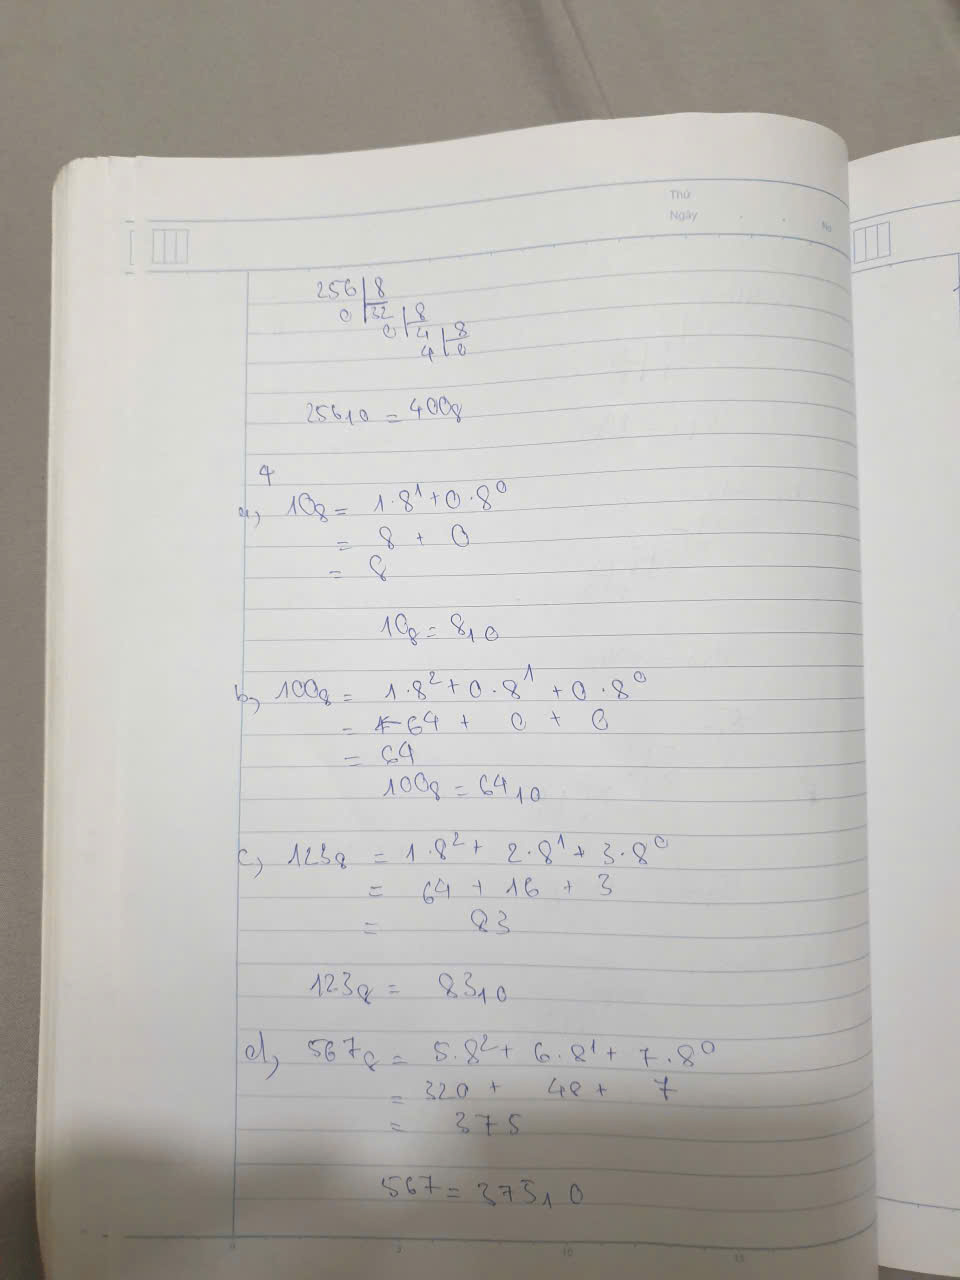 Thứ
Ngày
No
256 | 8
0 32 | 8
0 4 | 8
4 0
256₁₀ = 400₈
4
a, 10₈ = 1·8¹ + 0·8⁰
= 8 + 0
= 8
10₈ = 8₁₀
b, 100₈ = 1·8² + 0·8¹ + 0·8⁰
= 64 + 0 + 0
= 64
100₈ = 64₁₀
c, 123₈ = 1·8² + 2·8¹ + 3·8⁰
= 64 + 16 + 3
= 83
123₈ = 83₁₀
d, 567₈ = 5·8² + 6·8¹ + 7·8⁰
= 320 + 48 + 7
= 375
567 = 375₁₀
0 5 10 15